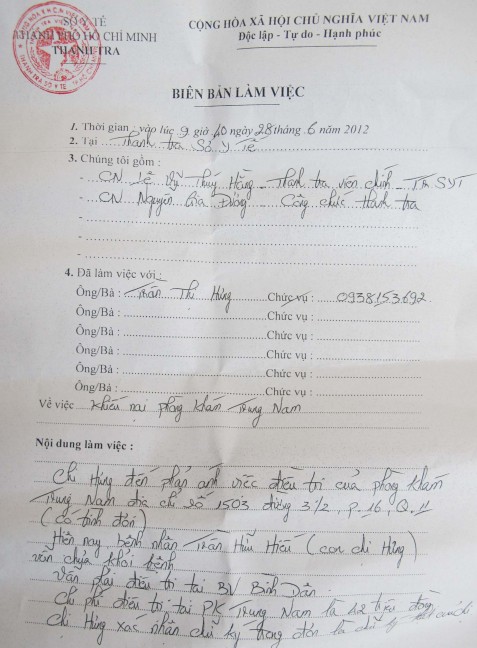 SỞ Y TẾ
THÀNH PHỐ HỒ CHÍ MINH
THANH TRA
CỘNG HÒA XÃ HỘI CHỦ NGHĨA VIỆT NAM
Độc lập - Tự do - Hạnh phúc
BIÊN BẢN LÀM VIỆC
1. Thời gian : vào lúc 9 giờ 40 ngày 28 tháng 6 năm 2012
2. Tại Thanh tra Sở Y tế
3. Chúng tôi gồm :
- CN Lê Thúy Hằng - Thanh tra viên chính - TTr SYT
- CN Nguyễn Đông Công chức thanh tra
-
-
4. Đã làm việc với :
Ông/Bà : Trần Thị Hứng Chức vụ : 0938153692
Ông/Bà : Chức vụ :
Ông/Bà : Chức vụ :
Ông/Bà : Chức vụ :
Ông/Bà : Chức vụ :
Ông/Bà : Chức vụ :
Về việc khiếu nại phòng khám Trung Nam
Nội dung làm việc :
Chị Hứng đến phản ánh việc điều trị của phòng khám
Trung Nam địa chỉ số 1503 đường 3/2, P.16, Q.11
( có đơn)
Hiện nay bệnh nhân Trần Hữu Hiếu (con chị Hứng)
vẫn chưa khỏi bệnh
Vẫn phải điều trị tại BV Bình Dân
Chi phí điều trị tại PK Trung Nam là 42 triệu đồng
chị Hứng xác nhận chữ ký trong đơn là chữ ký